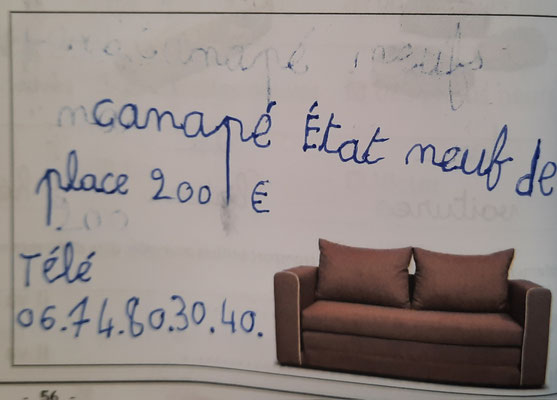 canapé neufs
canapé État neuf de
place 200 €
Télé
06.74.80.30.40.
200
voiture
- 56 -